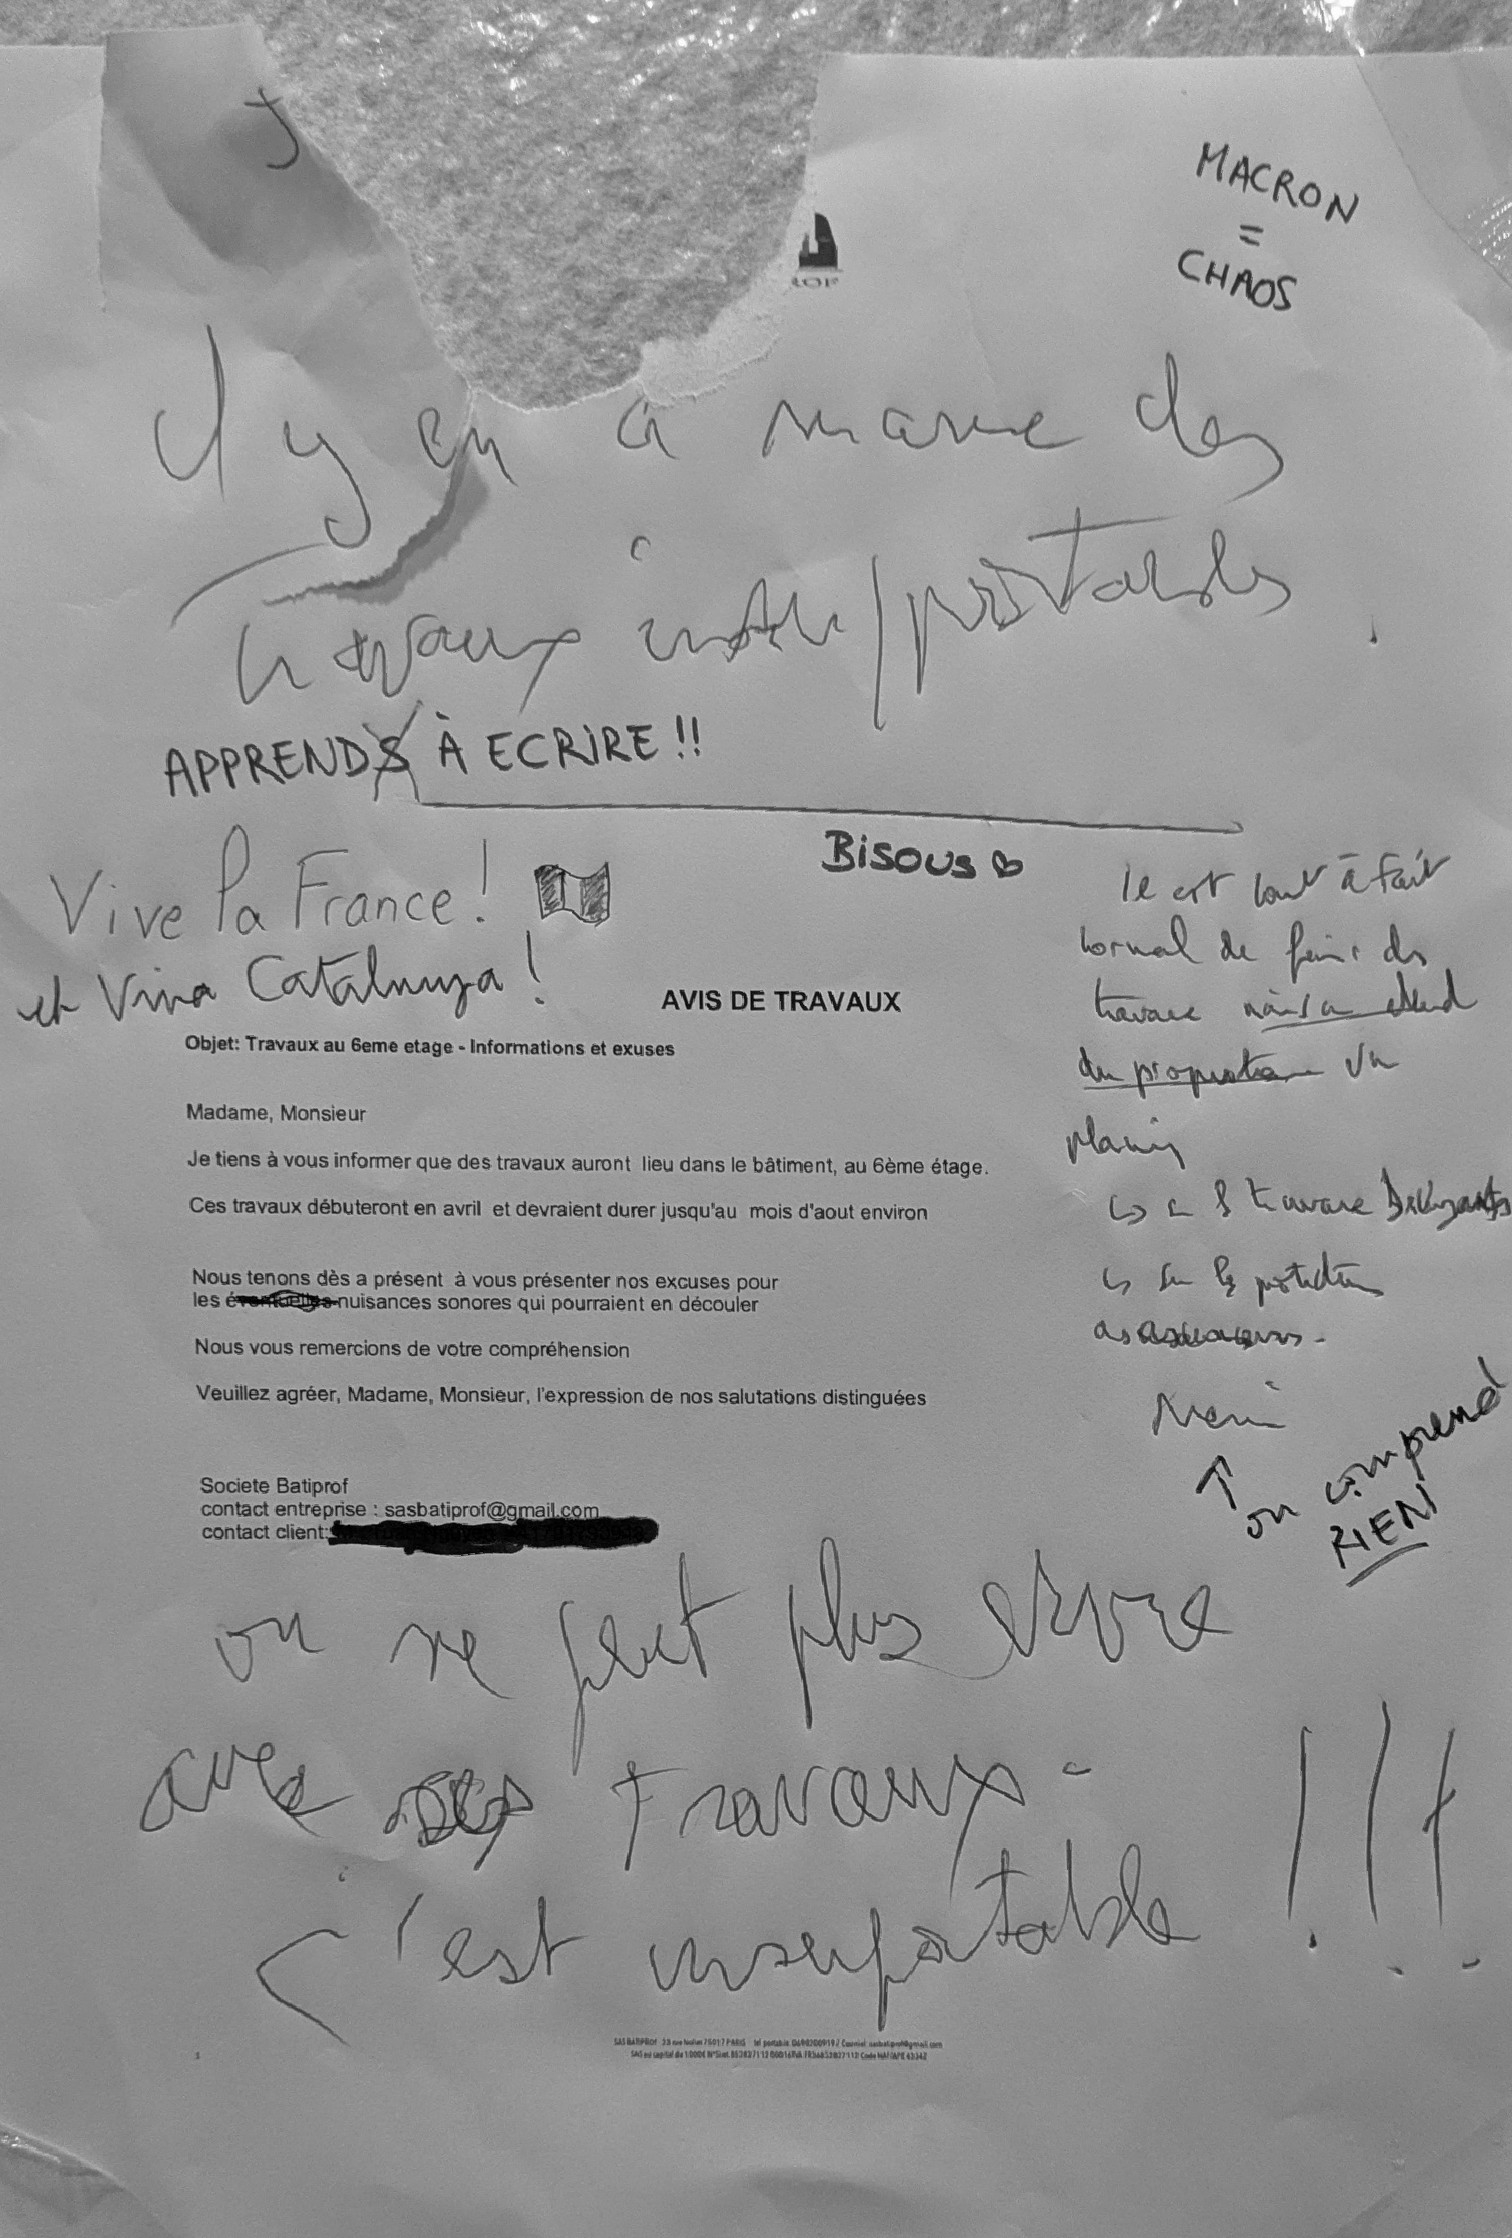 J
MACRON
=
CHAOS
ROF
il y en a marre des
travaux insupportables.
APPRENDS À ECRIRE !!
BISOUS
Vive la France !
et Viva Catalunya !
Il est tout à fait
normal de faire des
travaux
un
planning
travaux
↑
on comprend
RIEN
AVIS DE TRAVAUX
Objet: Travaux au 6eme etage - Informations et exuses
Madame, Monsieur
Je tiens à vous informer que des travaux auront lieu dans le bâtiment, au 6ème étage.
Ces travaux débuteront en avril et devraient durer jusqu'au mois d'aout environ
Nous tenons dès a présent à vous présenter nos excuses pour
les éventuelles nuisances sonores qui pourraient en découler
Nous vous remercions de votre compréhension
Veuillez agréer, Madame, Monsieur, l'expression de nos salutations distinguées
Societe Batiprof
contact entreprise : sasbatiprof@gmail.com
contact client:
on ne peut plus vivre
avec travaux -
c'est insupportable !!!
SAS BATIPROF 75017 PARIS tel portable 0698200919 / Courriel sasbatiprof@gmail.com
SAS au capital de 1000€ N°Siret